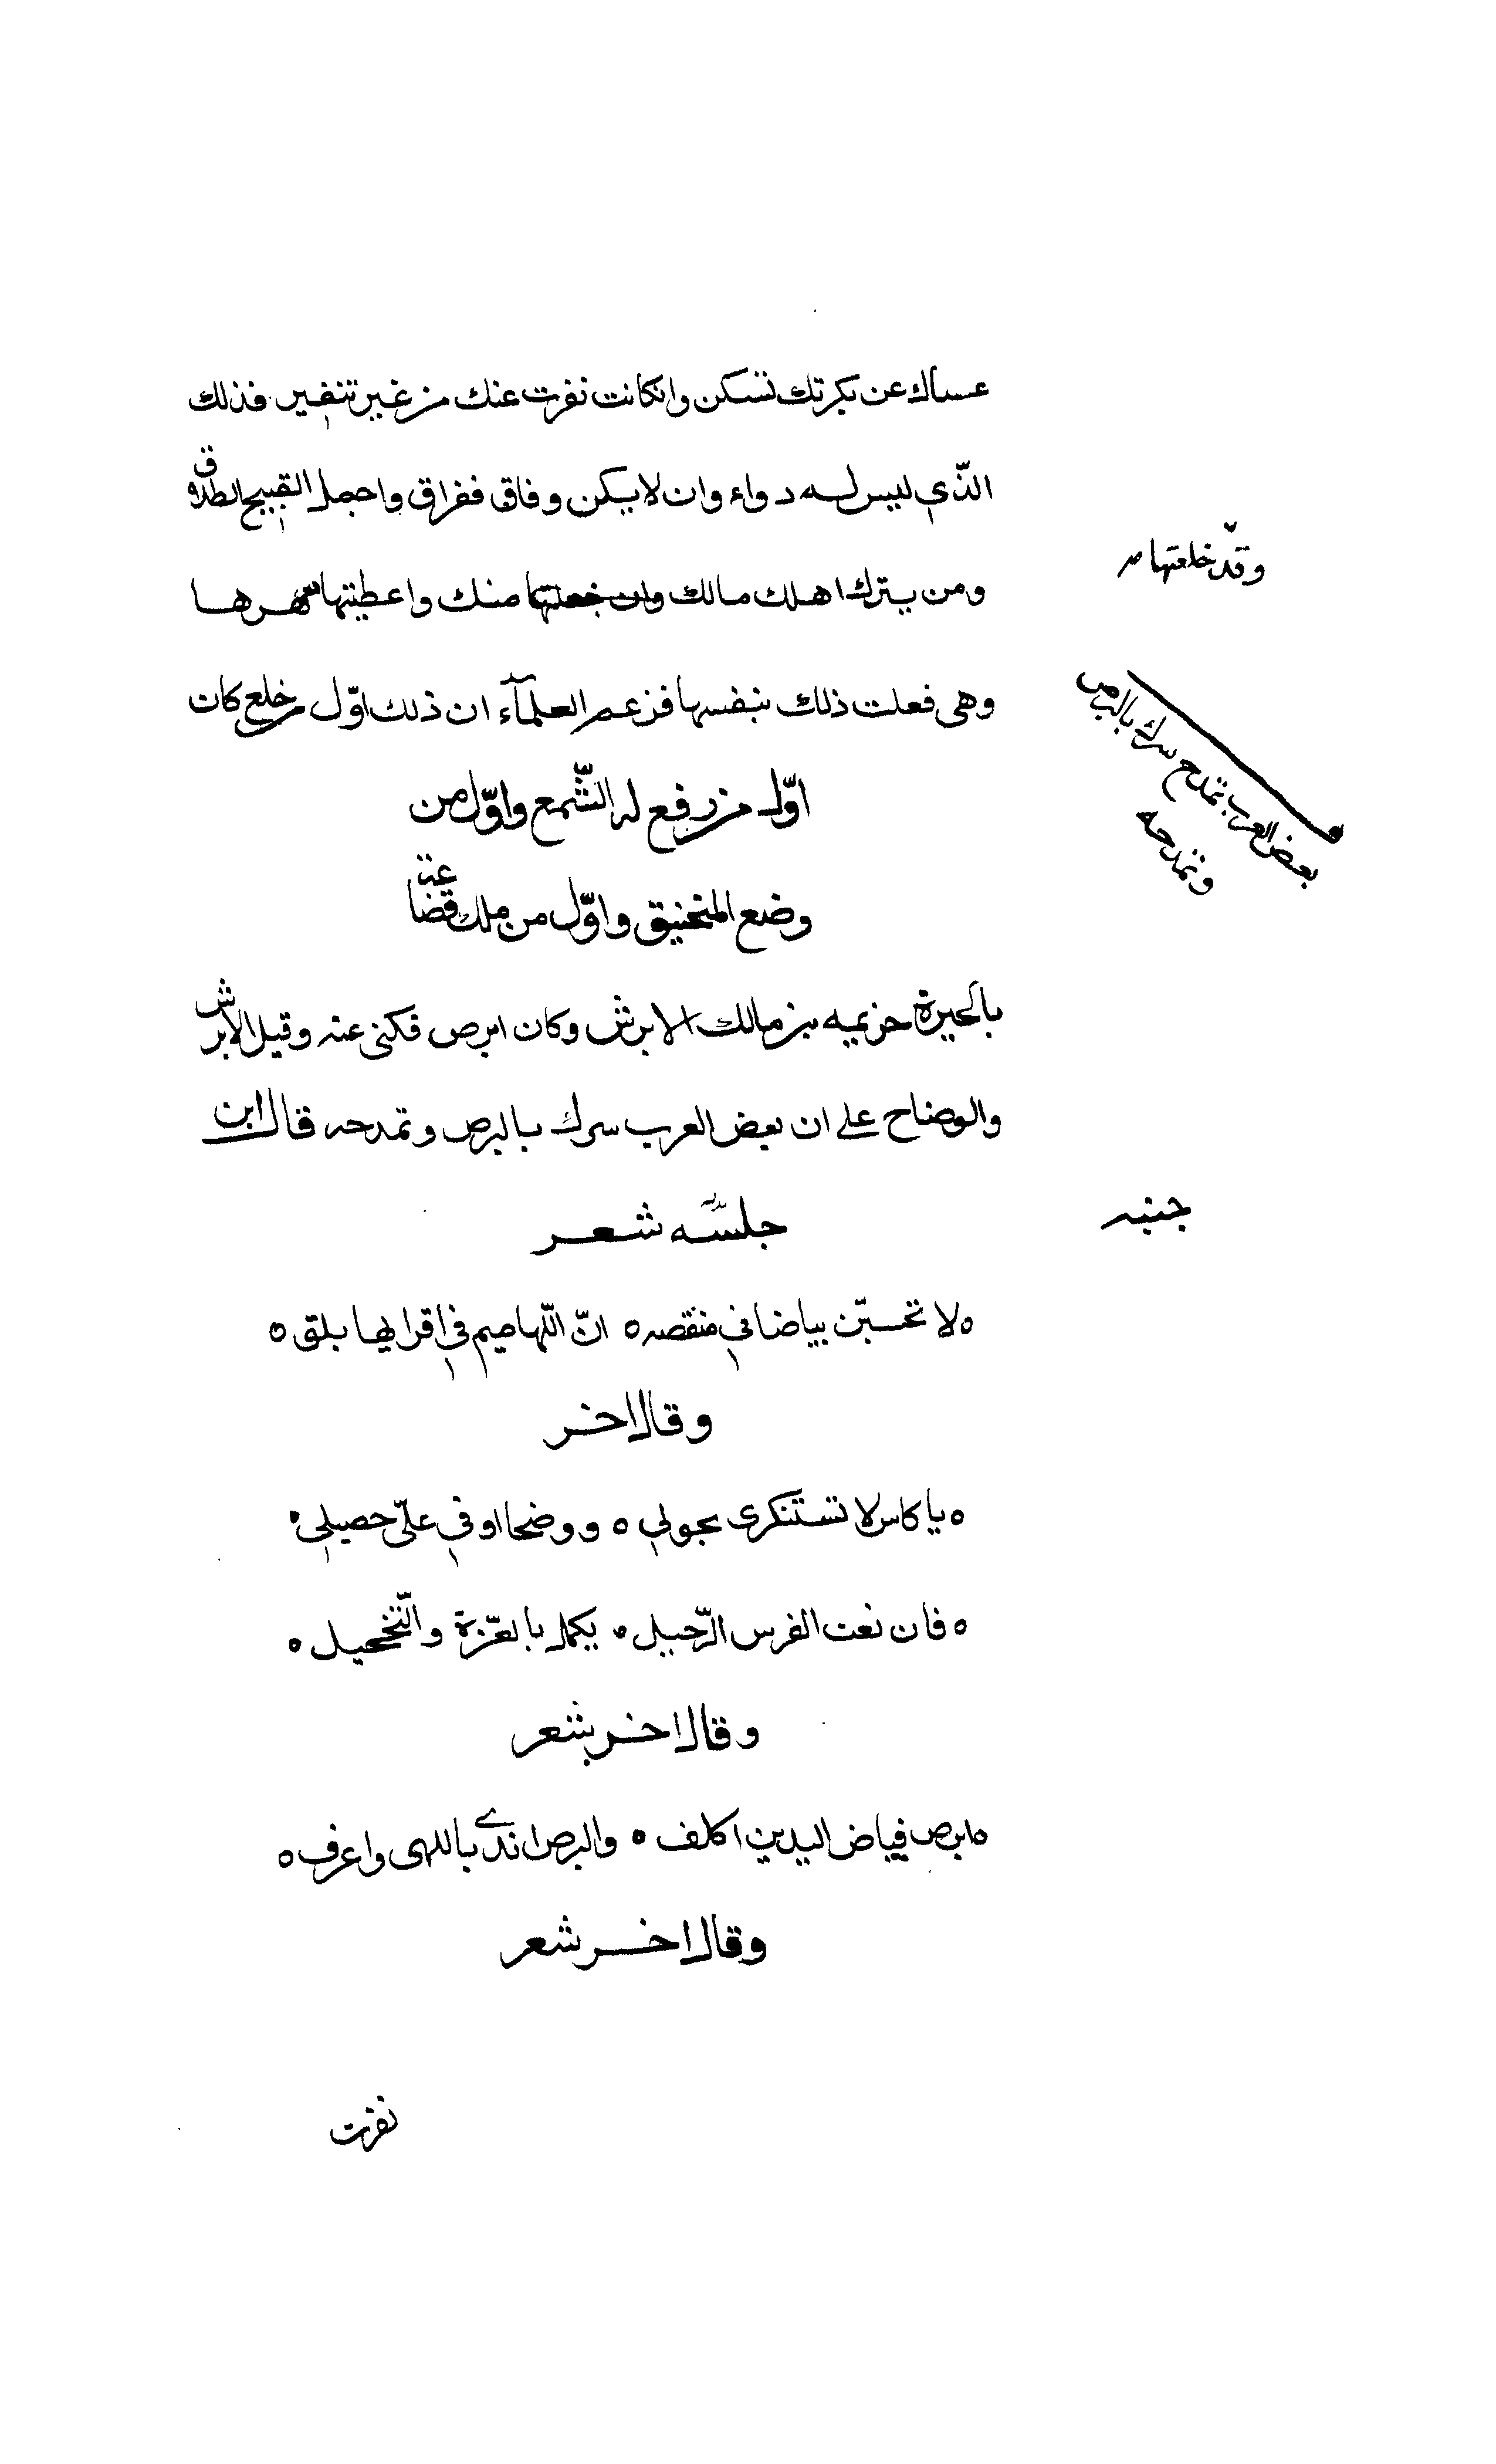 عساك عن بكرتك تسكن وانكانت نفرت عنك من غير تنفير فذلك
الذّي ليس له دواء وان لا يكن وفاق ففراق واجمل القبيح الطلاق
ومن يترك اهلك مالك وان خعلتها منك واعطيتها مهرها
وقد خلعتها
وهى فعلت ذلك بنفسها فزعم العلمآء ان ذلك اوّل من خلع كان
بعض العرب تمدح سرك بالبرص
وتمدحه
اوّل من رفع له الشّمع واوّل من
وضع المنحنيق واوّل من ملك قضاعة
بالحيرة حزيمه بن مالك الابرش وكان ابرص فكنى عنه وقيل الابرش
والوضاح على ان بعض العرب سرك بالبرص وتمدحه قال ابن
جلسه شعر
جنبه
ه لا تحسبّن بياضا في منقصه ه انّ اللّهاميم في اقرابها بلق ه
وقال اخر
ه يا كاس لا تستنكرى بحولي ه ووضحا اوفي علىّ حصيلي ه
ه فان نعت الفرس الرّحيل ه يكمل بالغرّة والتّحجيل ه
وقال اخر شعر
ه ابرص فياض اليدين اكلف ه والبرص اندى باللهى واعرف ه
وقال اخر شعر
نفرت